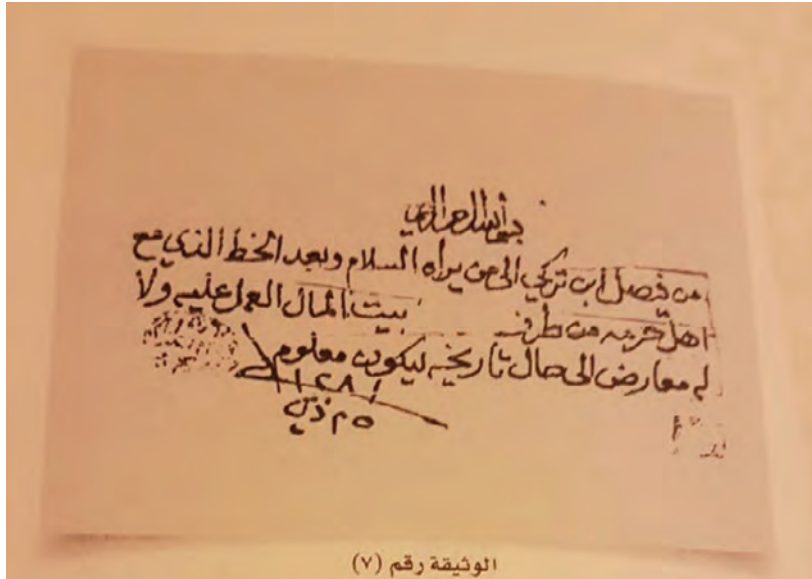 بسم الله الرحمن الرحيم
من فيصل ابن تركي الى من يراه السلام وبعد الخط الذي مع
اهل حرمه من طرف بيت المال العمل عليه ولا
له معارض الى حال تاريخه ليكون معلوم
١٢٨١
٢٥ ذي
الوثيقة رقم (٧)